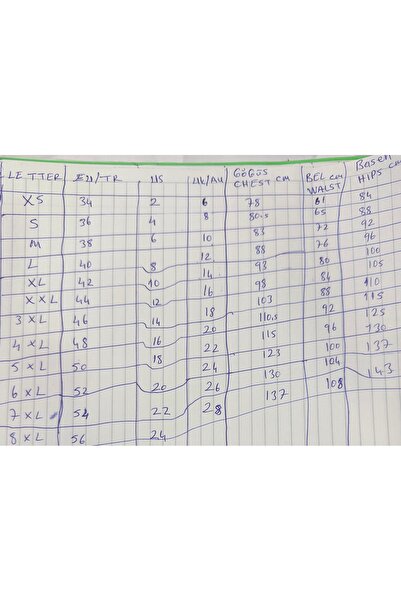 LETTER EU/TR US UK/AU GÖGÜS CHEST cm BEL cm WALST Basen HIPS cm
XS 34 2 6 78 61 84
S 36 4 8 80.5 65 88
M 38 6 10 83 72 92
L 40 8 12 88 76 96
XL 42 10 14 93 80 100
XXL 44 12 16 98 84 105
3XL 46 14 18 103 88 110
4XL 48 16 20 110.5 92 115
5XL 50 18 22 115 96 125
6XL 52 20 24 123 100 130
7XL 54 22 26 130 104 137
8XL 56 24 28 137 108 143